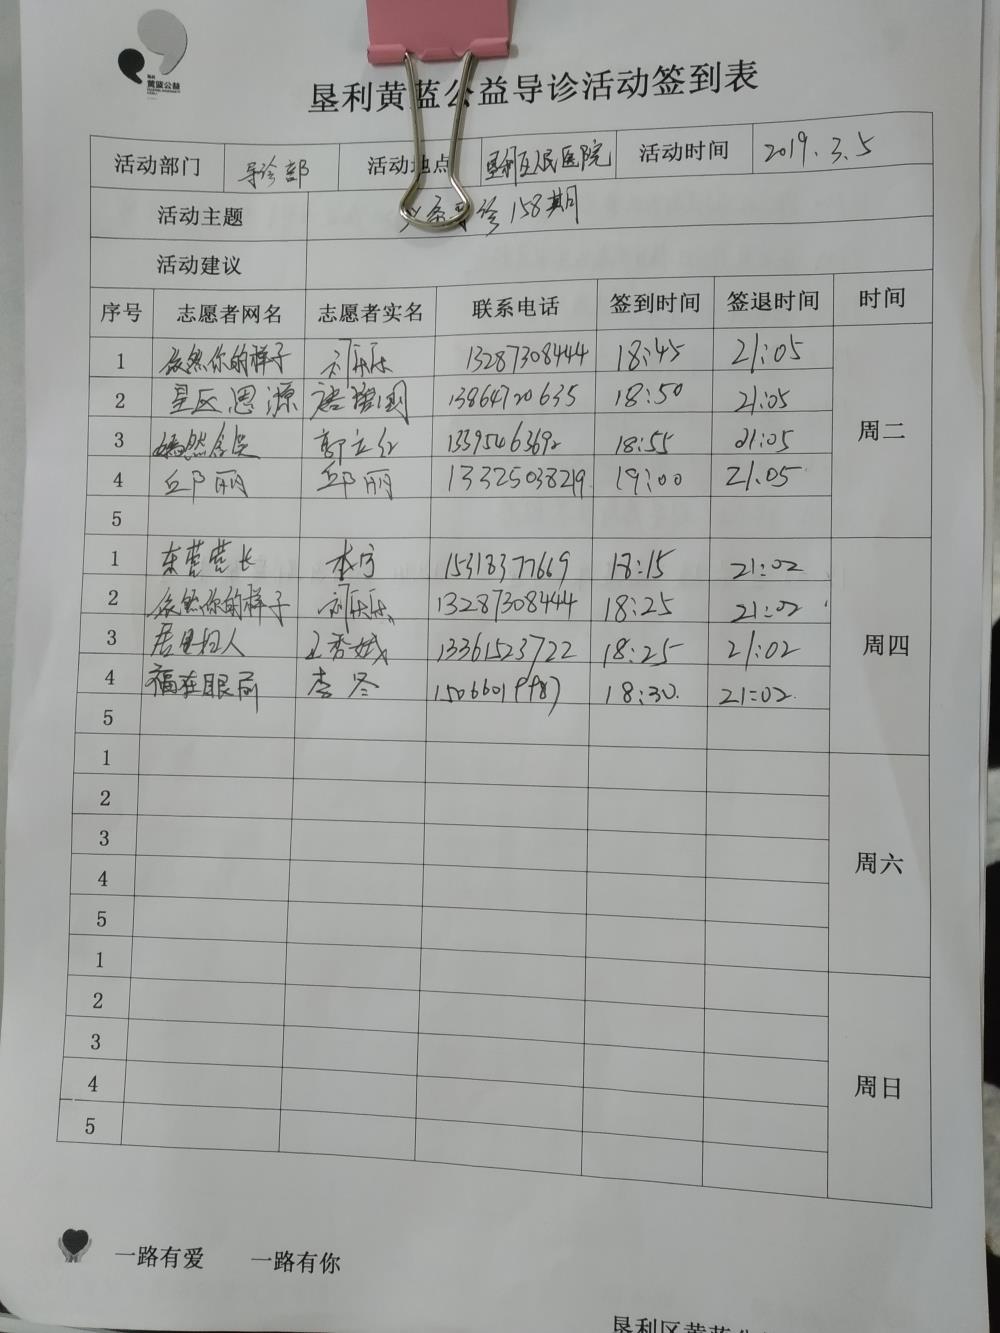 黄蓝公益
垦利黄蓝公益导诊活动签到表
活动部门 导诊部 活动地点 垦利区人民医院 活动时间 2019.3.5
活动主题 导诊158期
活动建议
序号 志愿者网名 志愿者实名 联系电话 签到时间 签退时间 时间
1 依然你的样子 刘乐乐 13287308444 18:45 21:05
2 星辰恩源 13864720635 18:50 21:05
周二
3 嫣然含笑 郭立红 13395463692 18:55 21:05
4 邱丽 邱丽 13325038219 19:00 21:05
5
1 东营营长 15318377669 18:15 21:02
2 依然你的样子 刘乐乐 13287308444 18:25 21:02
3 居里妇人 王秀娥 13361523722 18:25 21:02
周四
4 福在眼前 李冬 15066019987 18:30 21:02
5
1
2
3
周六
4
5
1
2
3
4
周日
5
一路有爱 一路有你
垦利区黄蓝